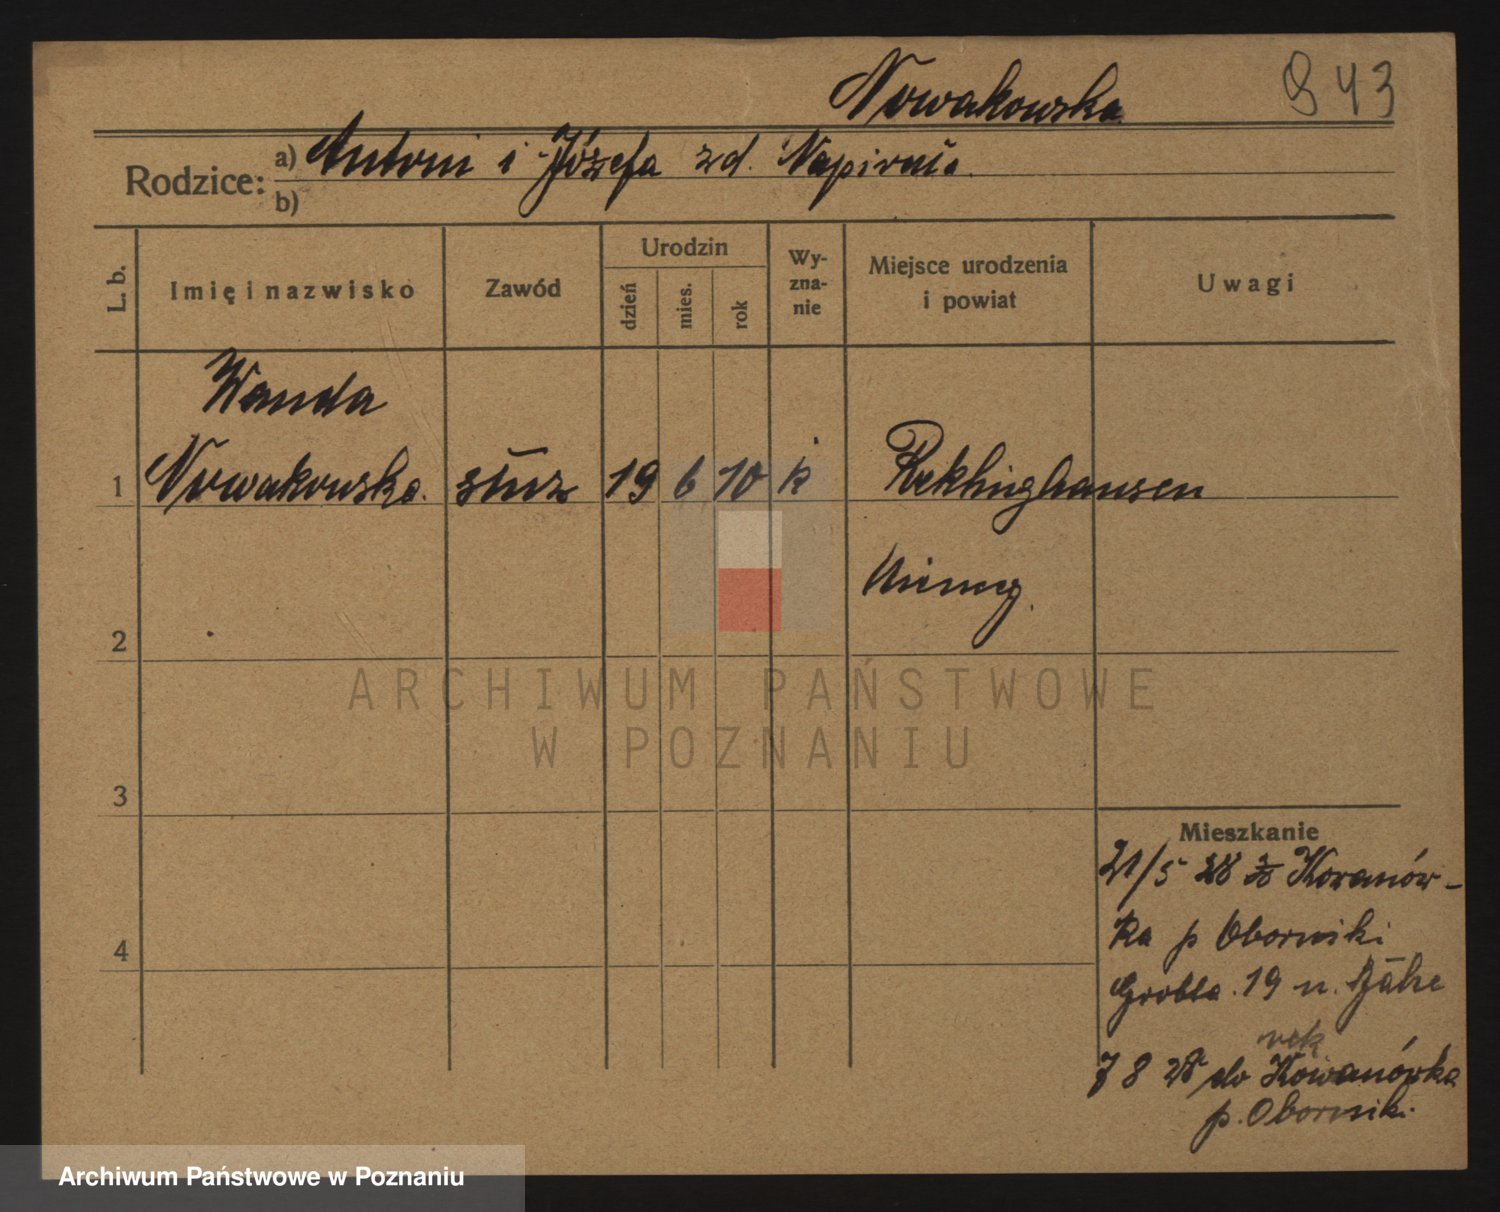 Nowakowska 943
Rodzice: a) Antoni i Józefa zd. Napirnia.
b)
L. b. Imię i nazwisko Zawód Urodzin dzień mies. rok Wyznanie Miejsce urodzenia i powiat Uwagi
Wanda
1 Nowakowska. służ 19 6 10 k Rekhinghausen
Niemcy.
2
3
4
Mieszkanie
21/5 28 z Kowanów-
ka p Oborniki
Grobla. 19 u.
7 8 28 do Kowanówka
p. Oborniki.
ARCHIWUM PAŃSTWOWE
W POZNANIU
Archiwum Państwowe w Poznaniu